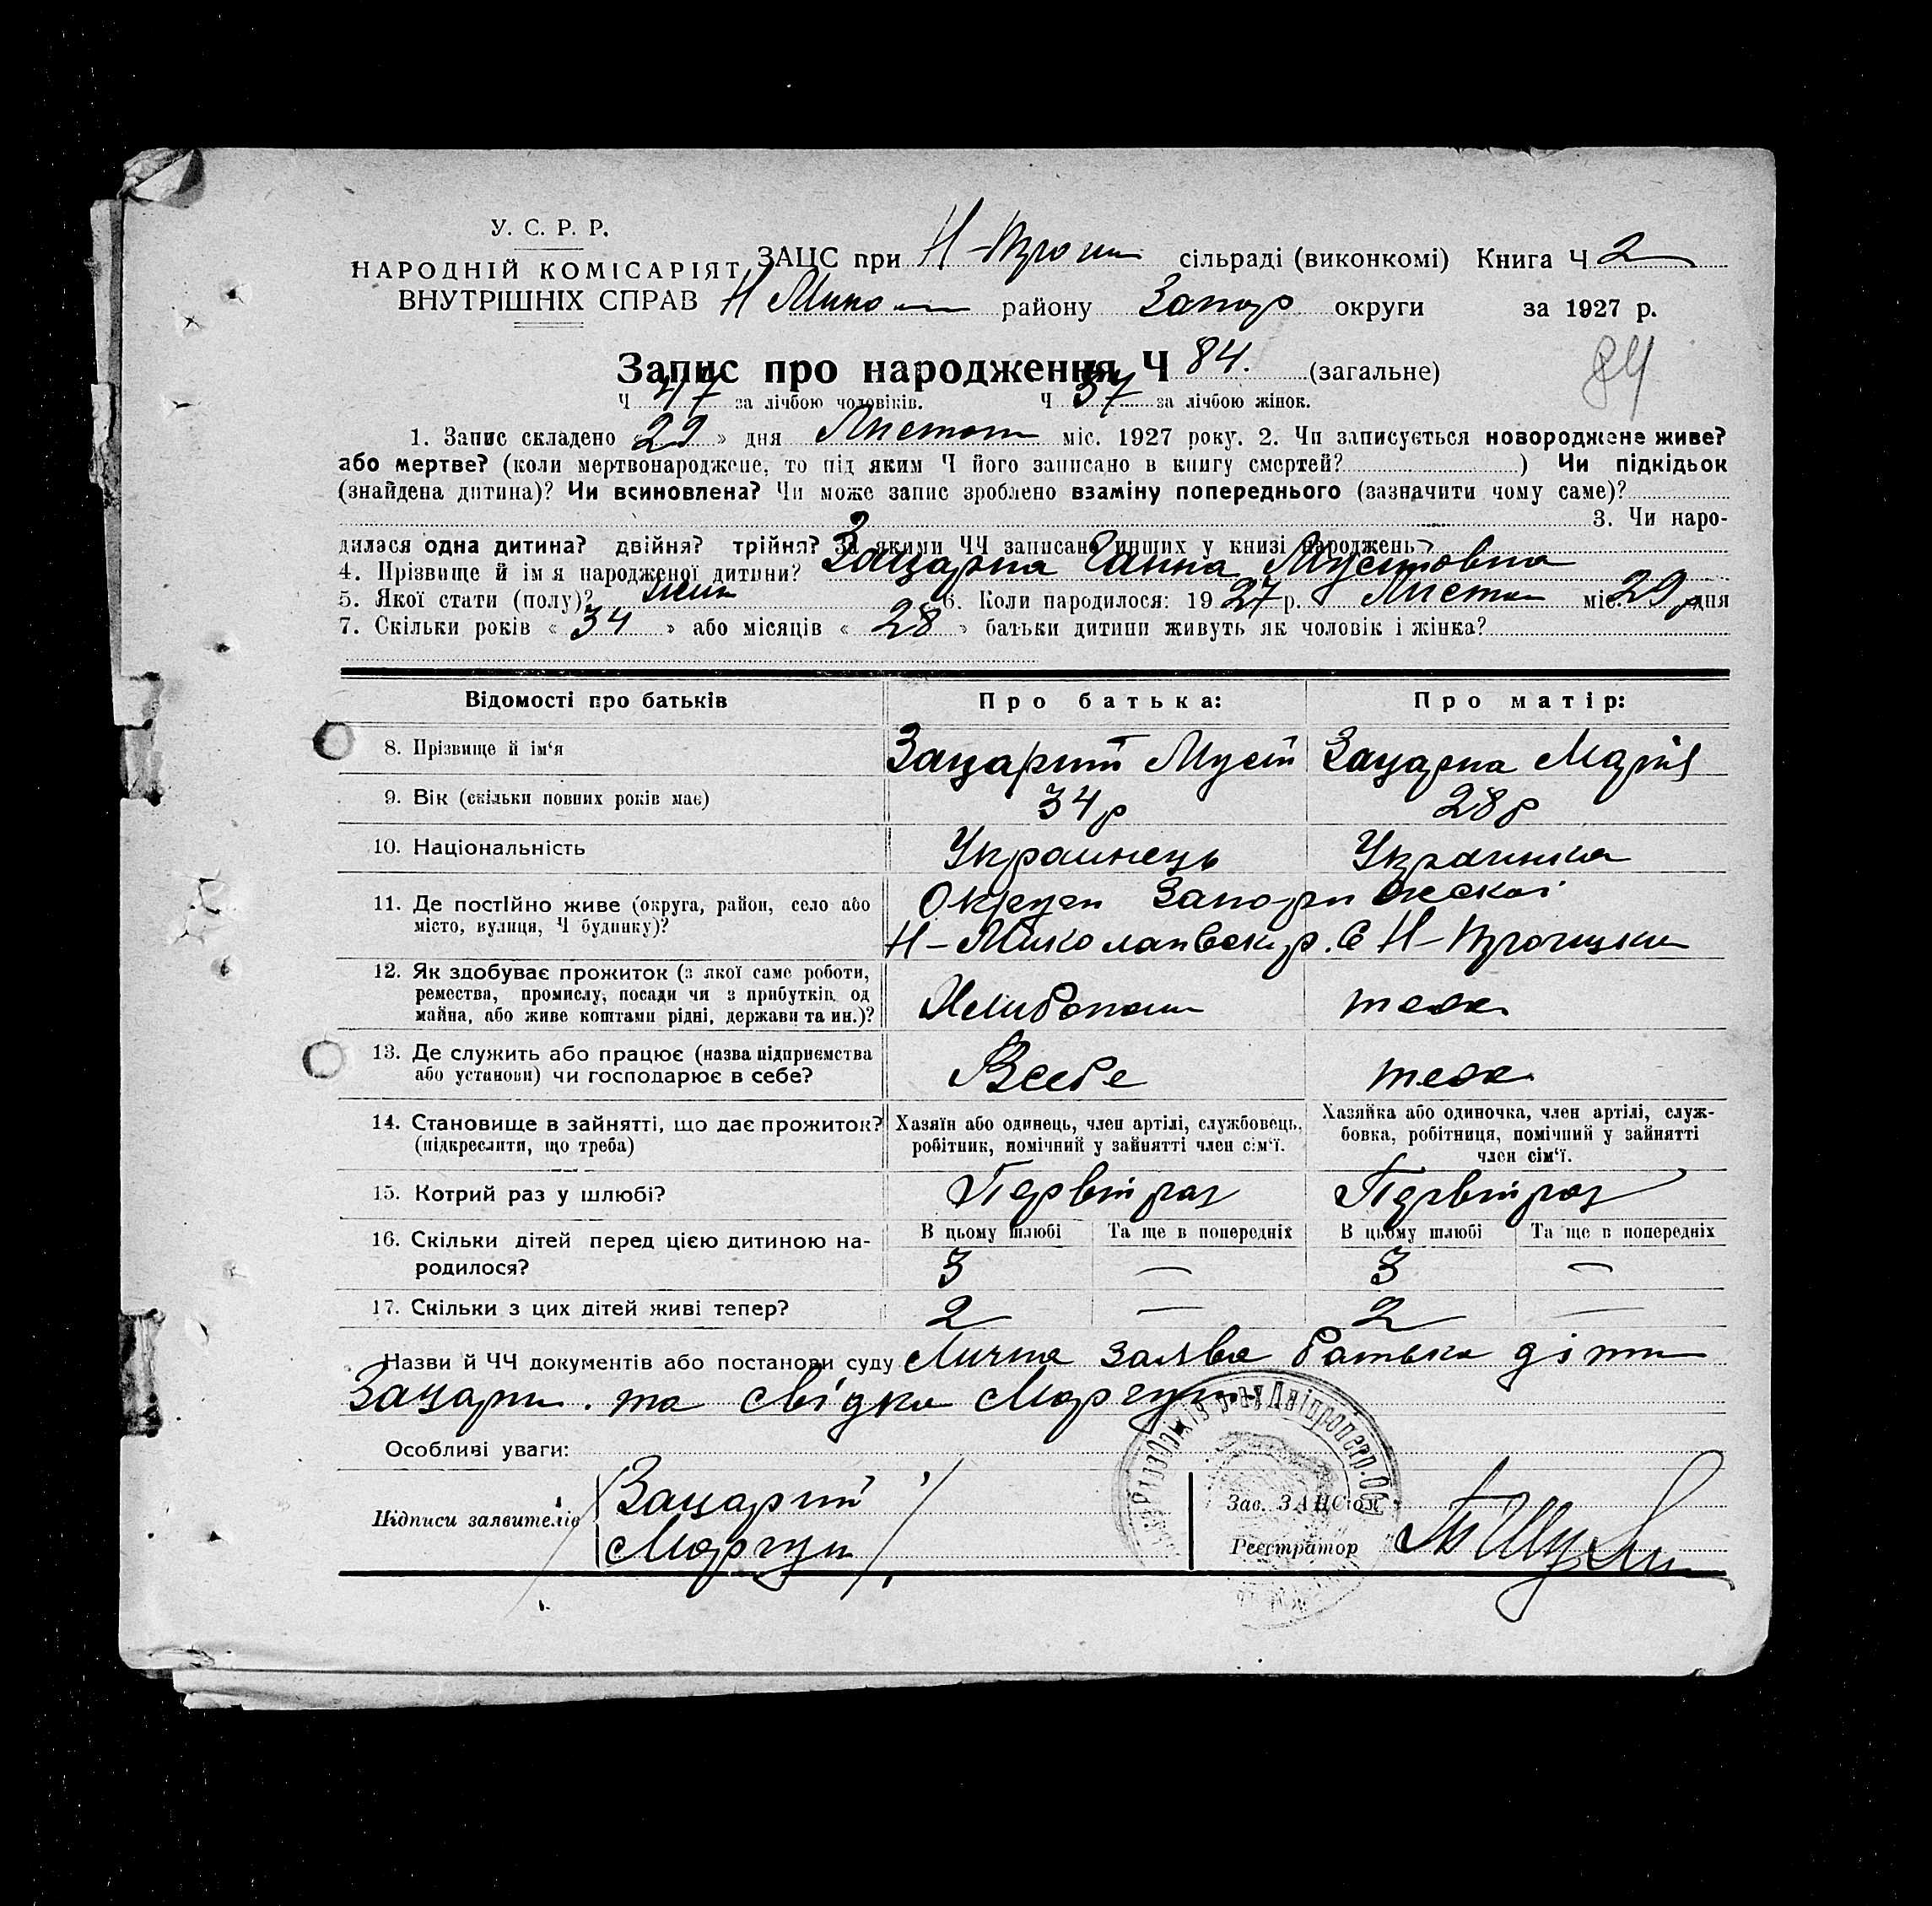 У. С. Р. Р.
НАРОДНІЙ КОМІСАРІЯТ
ВНУТРІШНІХ СПРАВ
ЗАЦС при Н- сільраді (виконкомі) Книга Ч 2
Н Мико района Запор округи за 1927 р.
Запис про народження Ч 84. (загальне)
84
Ч 47 за лічбою чоловіків. Ч 37 за лічбою жінок.
1. Запис складено «29» дня Листоп міс. 1927 року. 2. Чи записується новороджене живе?
або мертве? (коли мертвонароджене, то під яким Ч його записано в книгу смертей? ) Чи підкідьок
(знайдена дитина)? Чи всиновлена? Чи може запис зроблено взаміну попереднього (зазначити чому саме)?
3. Чи наро-
дилася одна дитина? двійня? трійня? За якими ЧЧ записано инших у книзі народжень?
4. Прізвище й ім'я народженої дитини? Зацарна Ганна Мусіовна
5. Якої стати (полу)? жін 6. Коли народилося: 1927 р. Листоп міс. 29 дня
7. Скільки років « 34 » або місяців « 28 » батьки дитини живуть як чоловік і жінка?
Відомості про батьків Про батька: Про матір:
8. Прізвище й ім'я Зацарний Мусій Зацарна Марія
9. Вік (скільки повних років має) 34 р 28 р
10. Національність Украинець Украинка
11. Де постійно живе (округа, район, село або
місто, вулиця, Ч будинку)?
Округи Запорижскої
Н-Миколаивськ р. С Н-
12. Як здобуває прожиток (з якої саме роботи,
ремества, промислу, посади чи з прибутків од
майна, або живе коштами рідні, держави та ин.)?
Хлибопаш теж
13. Де служить або працює (назва підприємства
або установи) чи господарює в себе?
Всебе теж
14. Становище в зайнятті, що дає прожиток?
(підкреслити, що треба)
Хазяїн або одинець, член артілі, службовець,
робітник, помічний у зайнятті член сім'ї.
Хазяйка або одиночка, член артілі, служ-
бовка, робітниця, помічний у зайнятті
член сім'ї.
15. Котрий раз у шлюбі? Первий раз Первий раз
16. Скільки дітей перед цією дитиною на-
родилося?
В цьому шлюбі Та ще в попередніх В цьому шлюбі Та ще в попередніх
3 — 3 —
17. Скільки з цих дітей живі тепер? 2 — 2 —
Назви й ЧЧ документів або постанови суду Лична заява батька дітини
Зацарн. та свідка Моргун
Особливі уваги:
Підписи заявителів Зацарний
Моргун
Зав. ЗАЦСом
Реєстратор